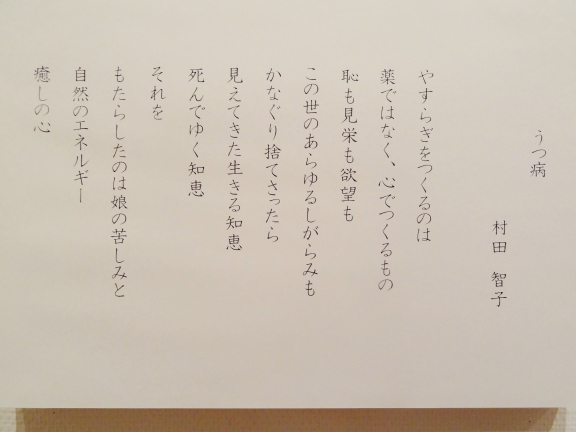 うつ病
村田 智子
やすらぎをつくるのは
薬ではなく、心でつくるもの
恥も見栄も欲望も
この世のあらゆるしがらみも
かなぐり捨てさったら
見えてきた生きる知恵
死んでゆく知恵
それを
もたらしたのは娘の苦しみと
自然のエネルギー
癒しの心